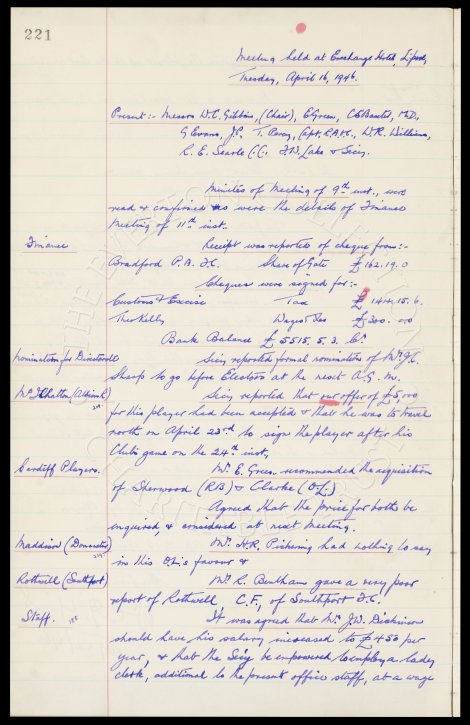 221
Meeting held at Exchange Hotel, L'pool,
Tuesday, April 16, 1946.
Present:- Messrs W.C. Gibbins, (Chair), E Green, C.S. Baxter, M.D.,
G Evans, J.P. T. Percy, Capt. R.A.M.C., W.R. Williams,
R. E. Searle C.C. F.W. Lake & Secy.
Minutes of Meeting of 9th inst., were
read & confirmed as were the details of Finance
Meeting of 11th inst..
Finance
Receipt was reported of cheque from:-
Bradford P. A. F.C. Share of Gate £162.19.0
Cheques were signed for:-
Customs & Excise Tax £1444.15.6.
Theo Kelly Wages & Fees £300.0.0
Bank Balance £5515.5.3. Cr.
Nomination for Directorate
Secy reported formal nomination of Mr
Sharp to go before Electors at the next A.G.M.
Mr (Albion R)
Secy reported that our offer of £5,000
for this player had been accepted & that he was to travel
north on April 23rd to sign the player after his
Club's game on the 24th inst.
Cardiff Players.
Mr. E. Green recommended the acquisition
of Sherwood (R.B) & Clarke (O.L.)
Agreed that the price for both be
enquired, & considered at next meeting.
Maddison (Doncaster)
Mr. H.R. Pickering had nothing to say
in this O.L's favour &
Rothwell (Southport)
Mr R. Bentham gave a very poor
report of Rothwell, C.F., of Southport F.C.
Staff.
It was agreed that Mr J.W. Dickinson
should have his salary increased to £450 per
year, & that the Secy be empowered to employ a lady
clerk, additional to the present office staff, at a wage